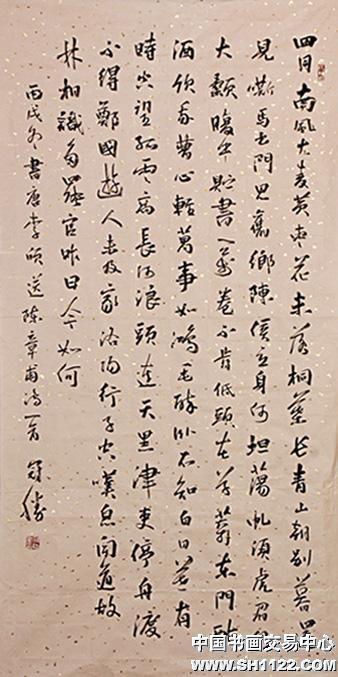 四月南風大麥黃棗花未落桐葉長青山朝別暮還
見嘶馬出門思舊鄉陳侯立身何坦蕩虬須虎眉仍
大顙腹中貯書一萬卷不肯低頭在草莽東門酤
酒飲我曹心輕萬事如鴻毛醉臥不知白日暮有
時空望孤雲高長河浪頭連天黑津吏停舟渡
不得鄭國遊人未及家洛陽行子空嘆息聞道故
林相識多罷官昨日今如何
丙戌冬書唐李頎送陳章甫詩一首 勝
中国书画交易中心
www.SH1122.com